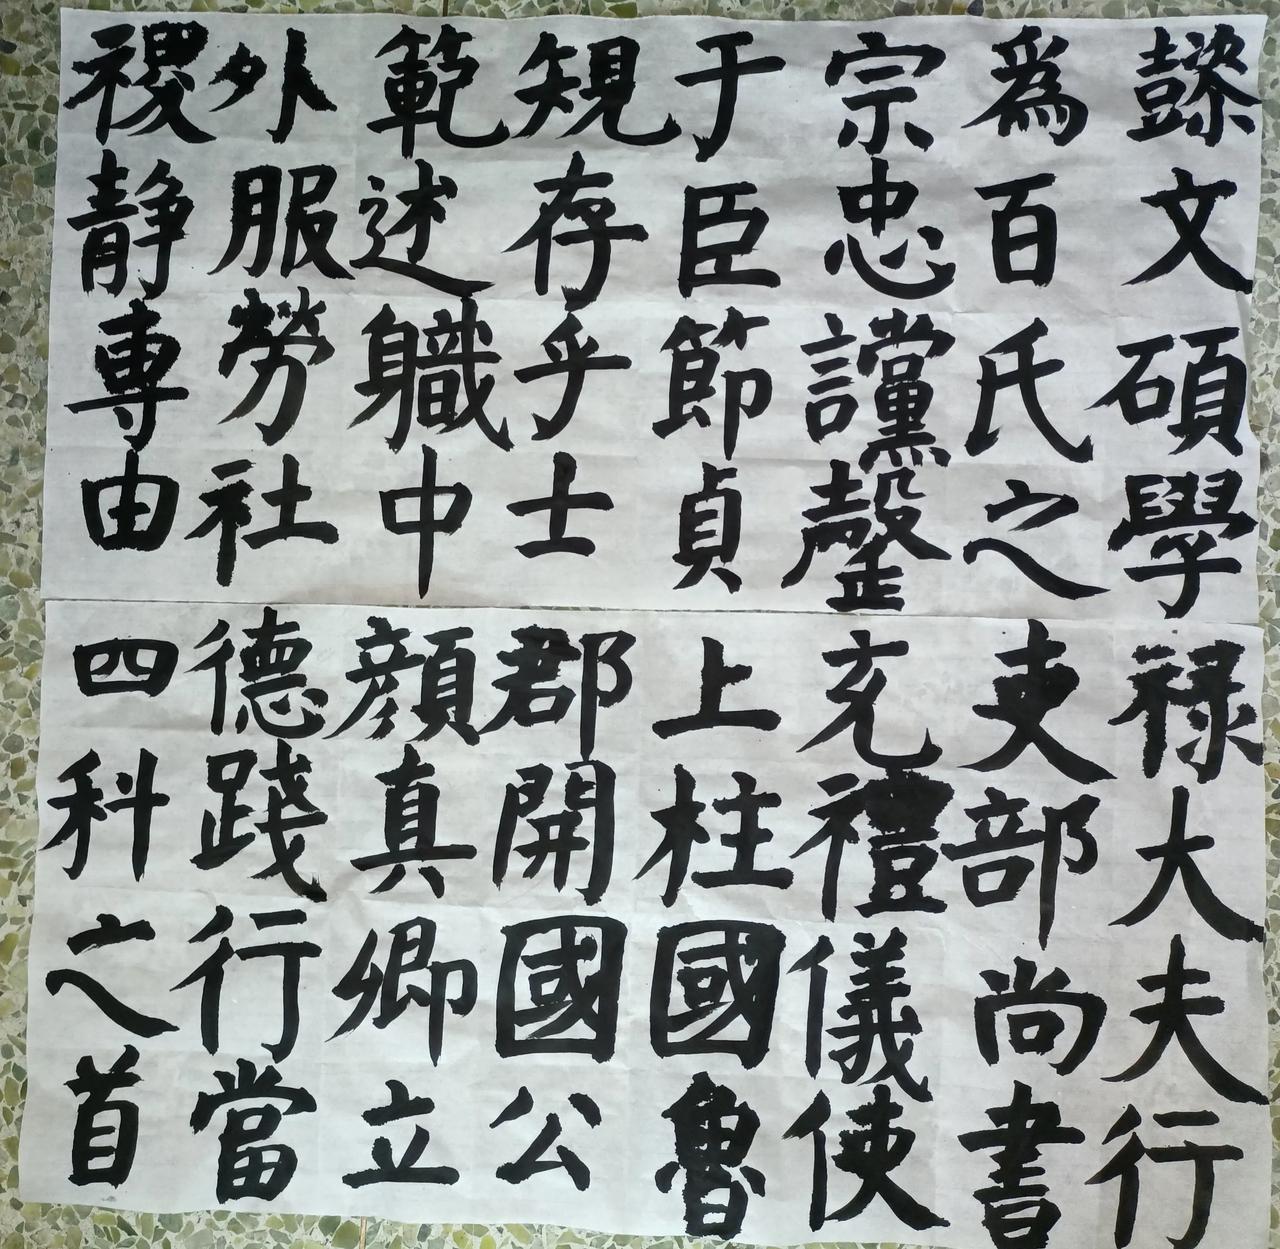 懿文碩學
爲百氏之
宗忠讜罄
于臣節貞
規存乎士
範述軄中
外服勞社
禝静專由
禄大夫行
吏部尚書
充禮儀使
上柱國魯
郡開國公
顔真卿立
德踐行當
四科之首